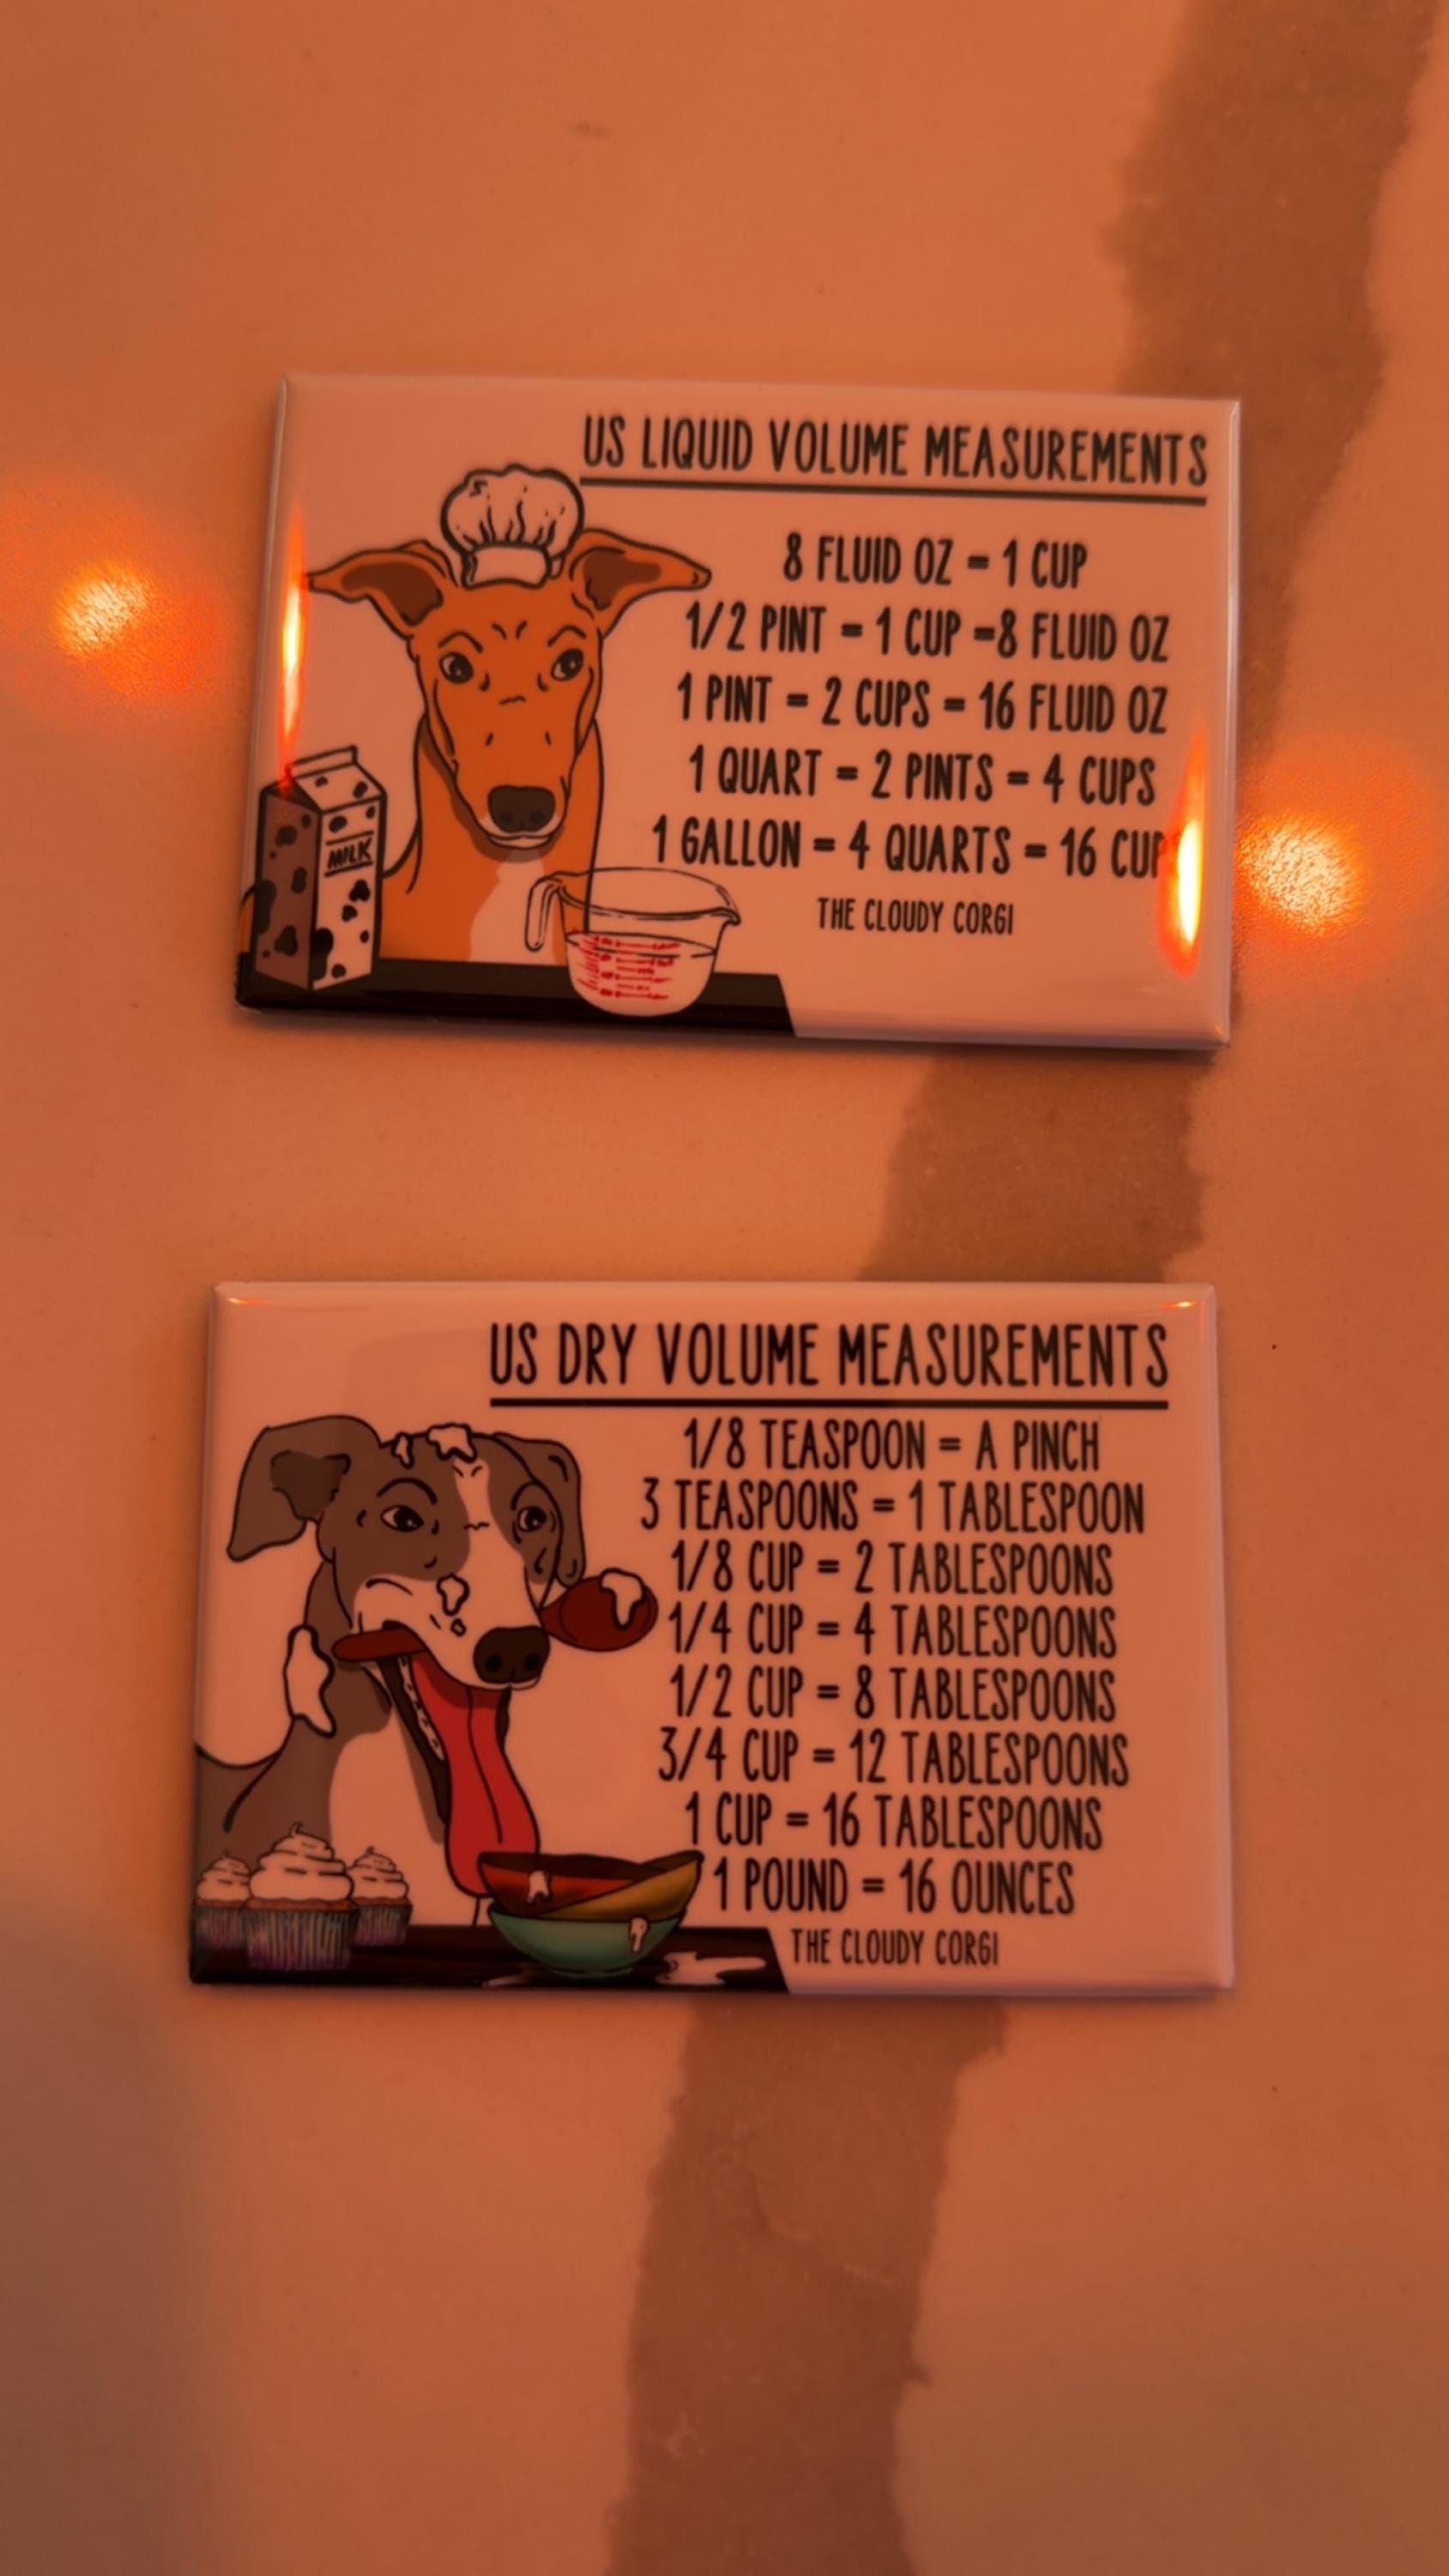 US LIQUID VOLUME MEASUREMENTS
8 FLUID OZ = 1 CUP
1/2 PINT = 1 CUP =8 FLUID OZ
1 PINT = 2 CUPS = 16 FLUID OZ
1 QUART = 2 PINTS = 4 CUPS
1 GALLON = 4 QUARTS = 16 CUPS
MILK
THE CLOUDY CORGI
US DRY VOLUME MEASUREMENTS
1/8 TEASPOON = A PINCH
3 TEASPOONS = 1 TABLESPOON
1/8 CUP = 2 TABLESPOONS
1/4 CUP = 4 TABLESPOONS
1/2 CUP = 8 TABLESPOONS
3/4 CUP = 12 TABLESPOONS
1 CUP = 16 TABLESPOONS
1 POUND = 16 OUNCES
THE CLOUDY CORGI